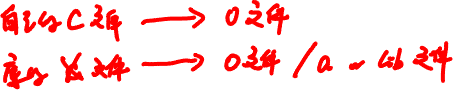 自己的C文件 → O文件
库的 文件 → O文件 / a lib文件